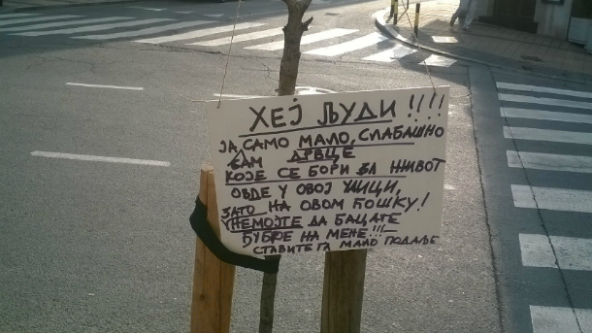 ХЕЈ ЉУДИ !!!!
ЈА, САМО МАЛО, СЛАБАШНО
САМ ДРВЦЕ
КОЈЕ СЕ БОРИ ЗА ЖИВОТ
ОВДЕ У ОВОЈ УЛИЦИ,
ЗАТО НА ОВОМ ЋОШКУ!
НЕМОЈТЕ ДА БАЦАТЕ
ЂУБРЕ НА МЕНЕ!!!
СТАВИТЕ ГА МАЛО ПОДАЉЕ